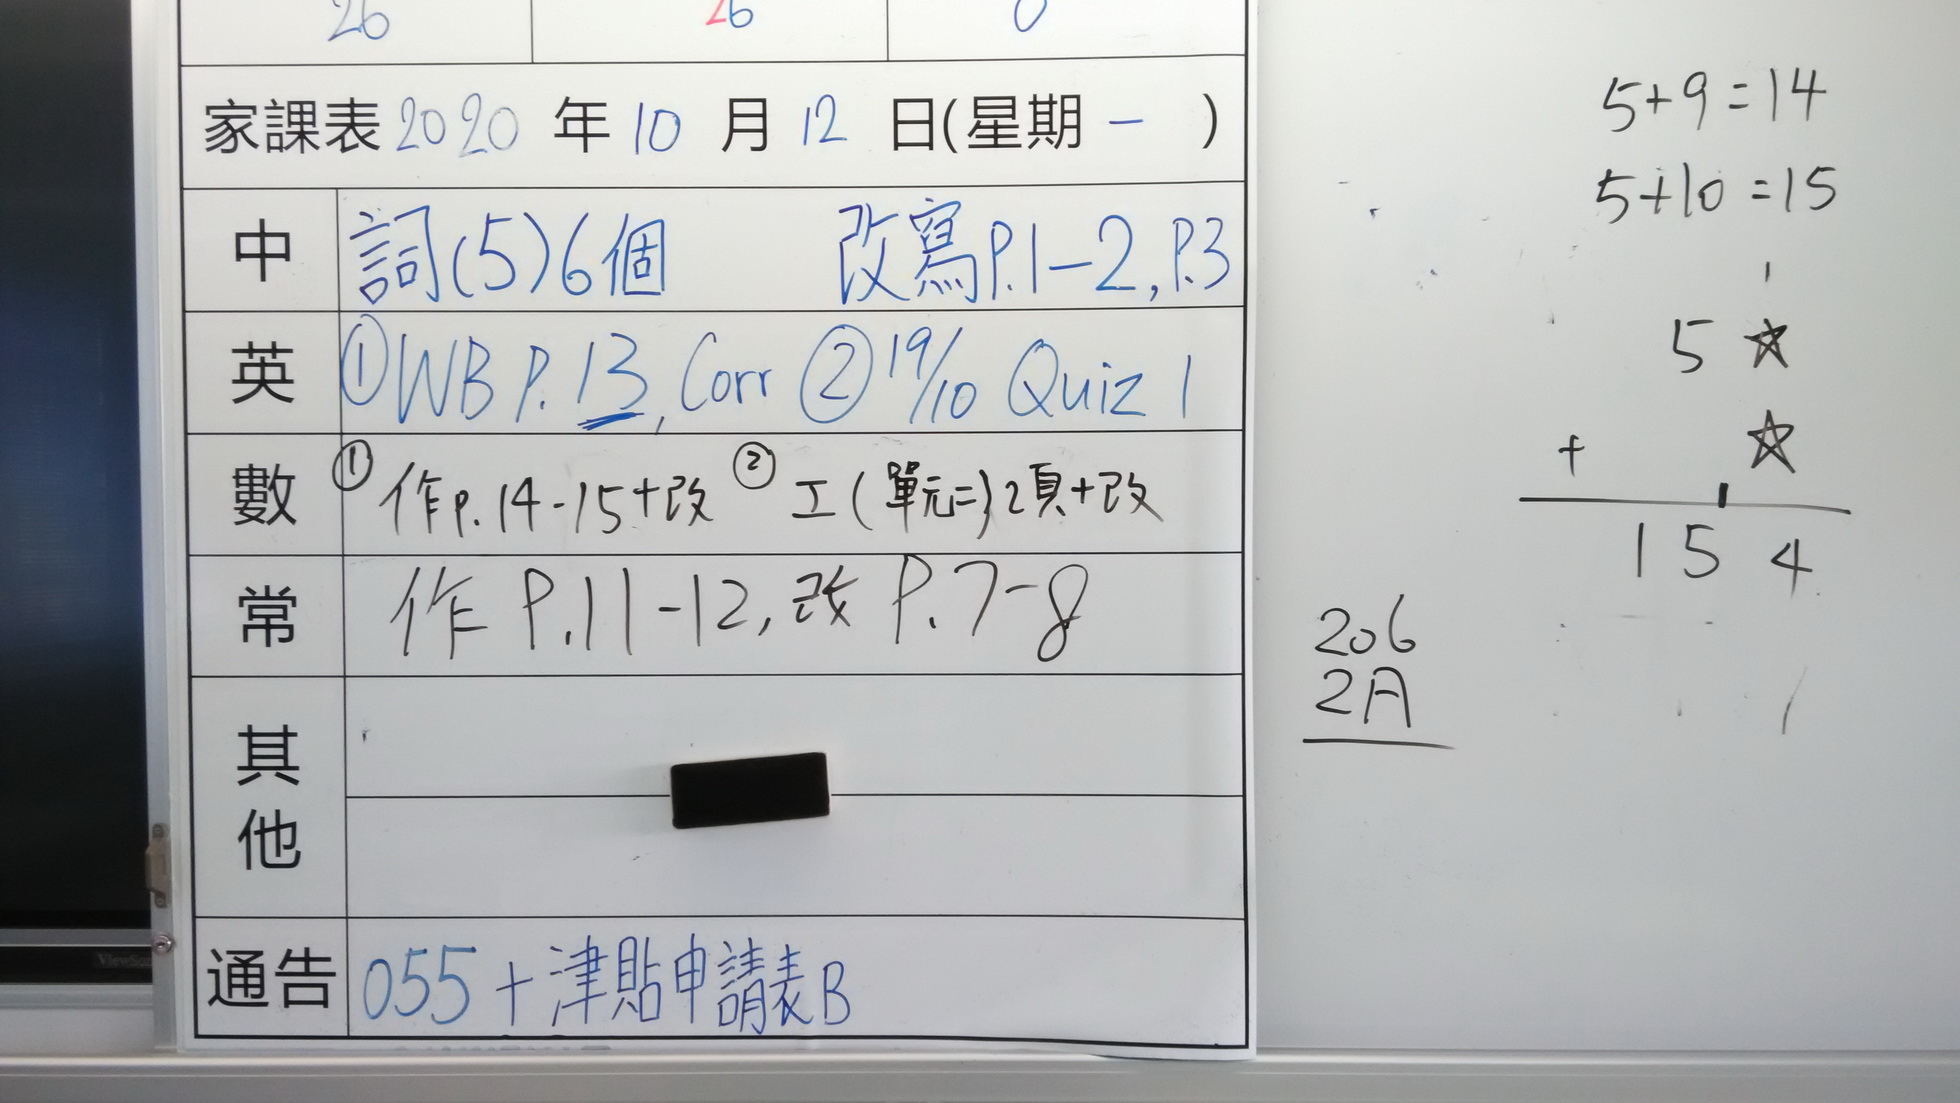 26 26 0
家課表 2020 年 10 月 12 日(星期 一 )
中 詞(5)6個 改寫P.1-2, P.3
英 ①WB P.13, Corr ② 19/10 Quiz 1
數 ① 作p.14-15+改 ② 工(單元二)2頁+改
常 作 P.11-12, 改 P.7-8
其他
通告 055+津貼申請表B
5+9=14
5+10=15
1
5 ☆
+ ☆
1
1 5 4
206
2A